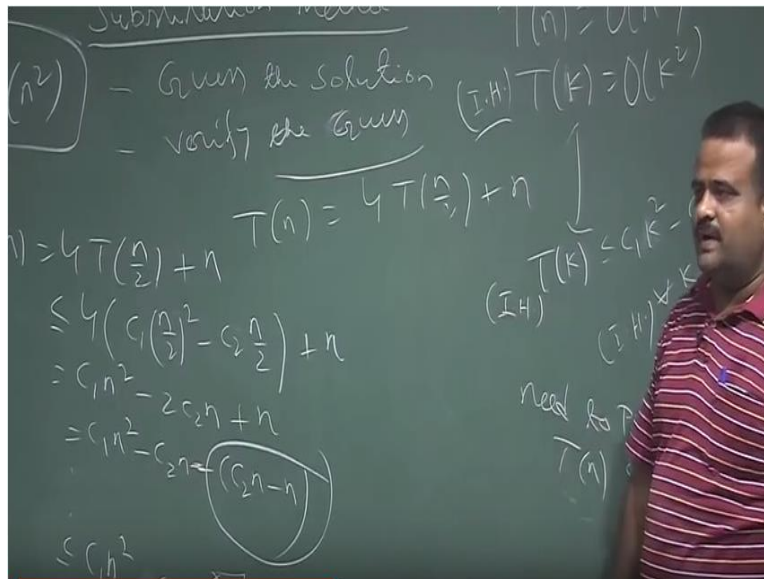 Substitution
T(n) =
(n²)
- Guess the solution
(I.H.) T(k) = O(k²)
- verify the Guess
T(n) = 4T(n/2) + n
) = 4T(n/2) + n
≤ 4(c₁(n/2)² - c₂ n/2) + n
= c₁n² - 2c₂n + n
= c₁n² - c₂n - (c₂n - n)
≤ c₁n²
(I.H) T(k) ≤ c₁k² -
(I.H) ∀ k
need to P
T(n)